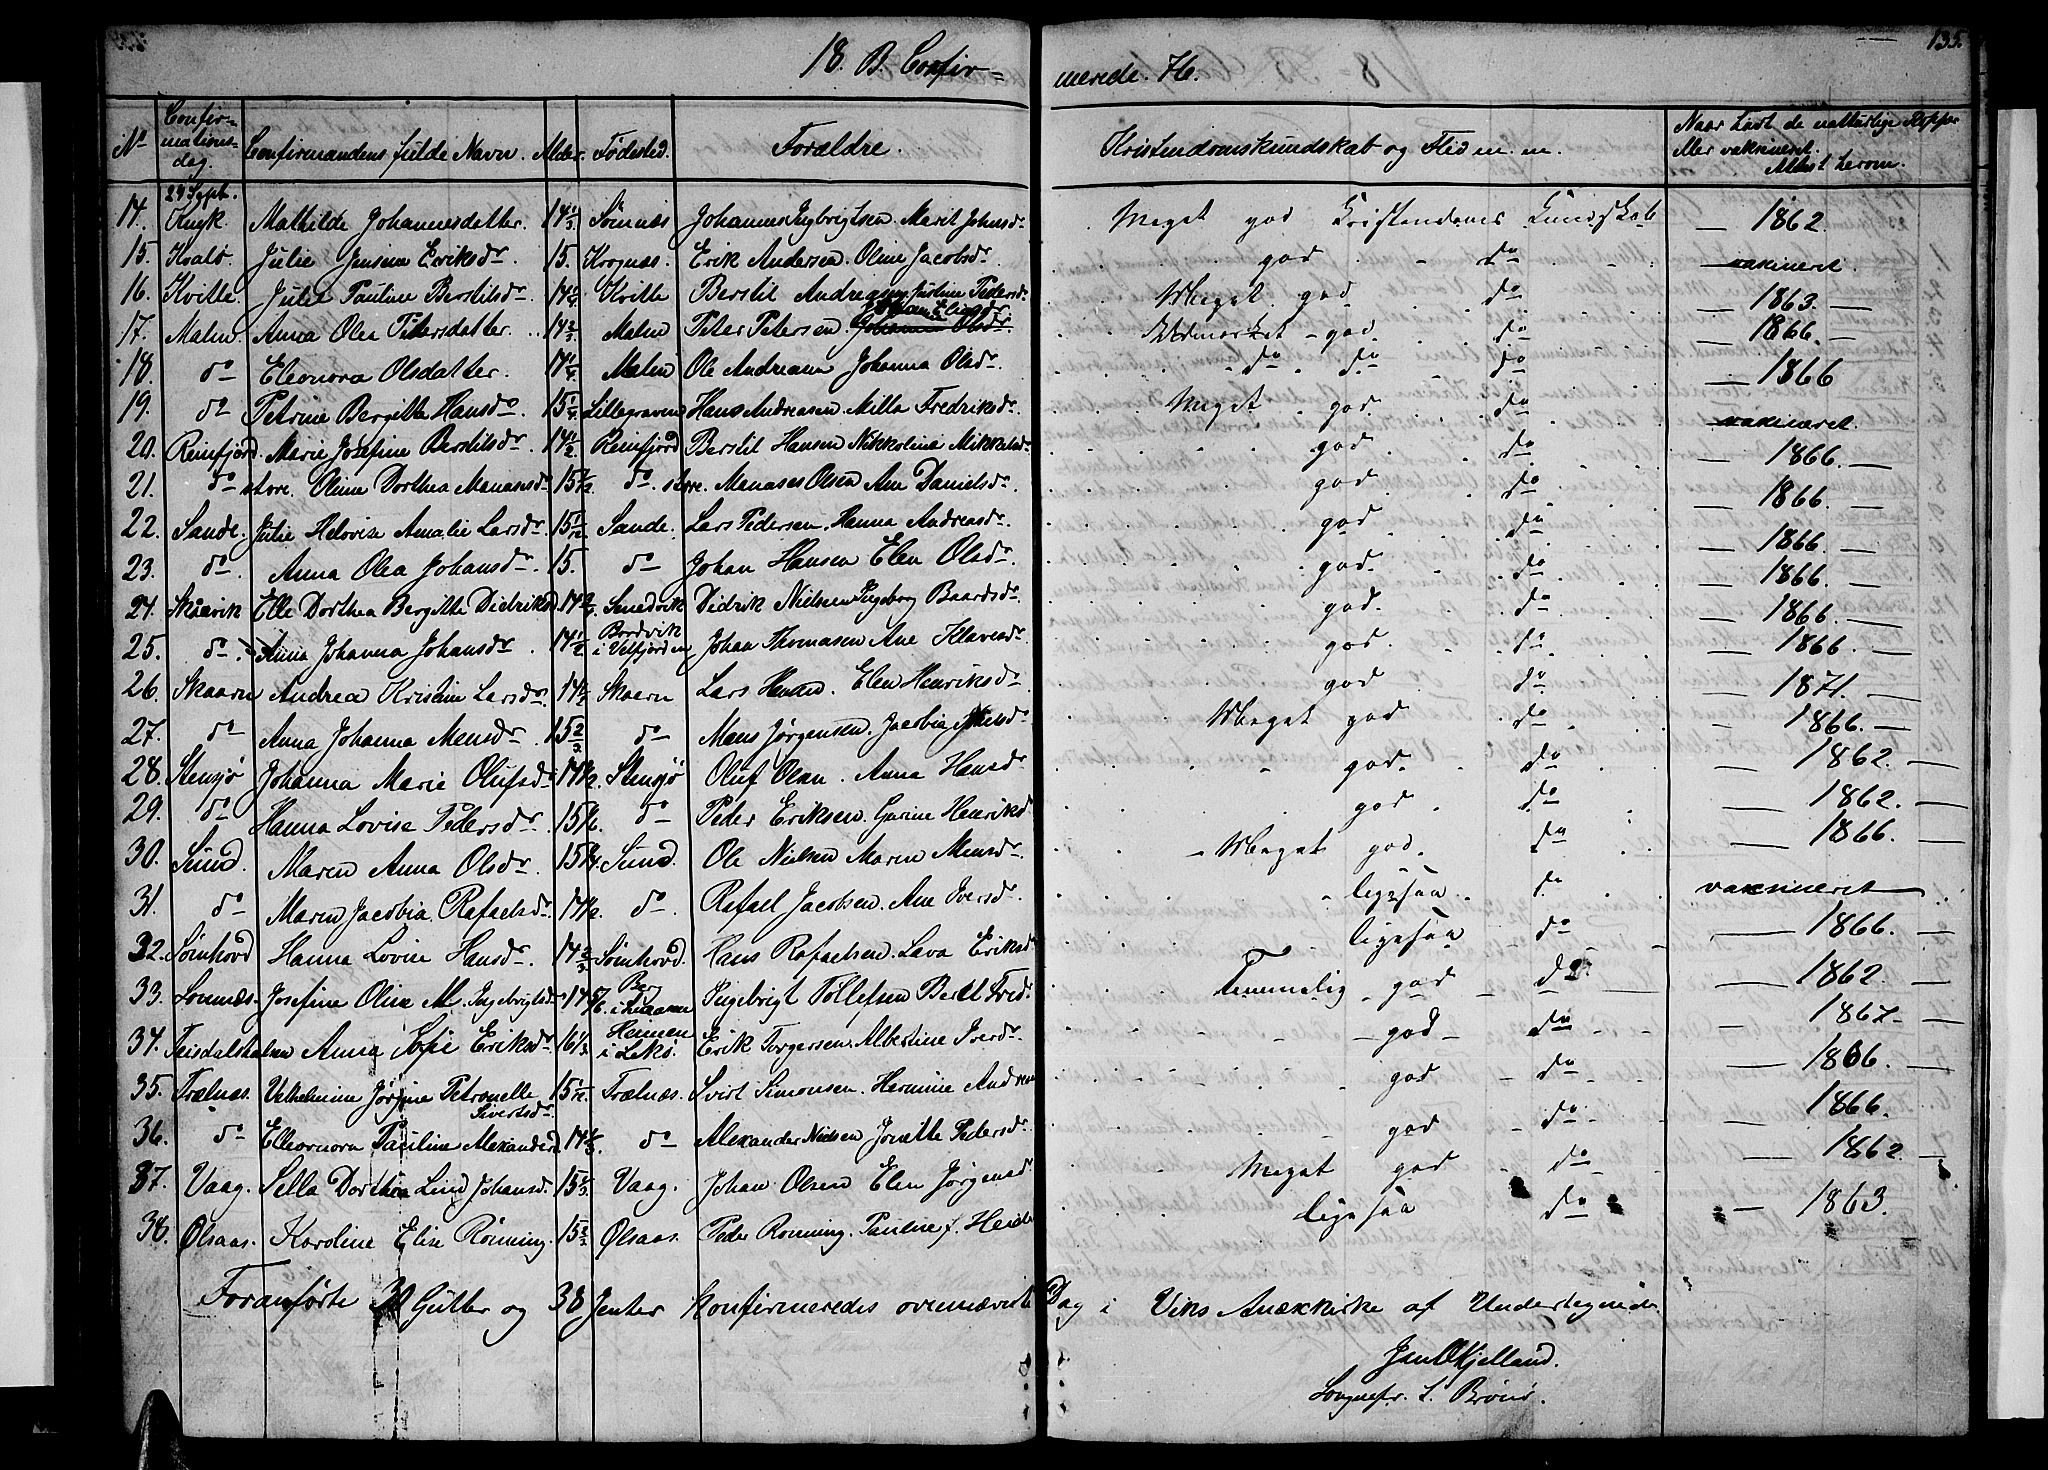 135.
18. B. Confir- merede. 76.
No Confirmationsdag. Confirmandens fulde Navn. Alder. Fødested. Forældre. Kristendomskundskab og Flid m. m. Naar havt de natturlige Kopper eller vaksineret. Attest herom.
24 Sept.
14. Mathilde Johannesdatter. 14 1/3 Sømnæs Johannes Ingbrigtsen. Marit Johnsdr Meget god Kristendoms Kundskab — 1862.
15. Kvalø. Julie Jensine Eriksdr. 15. Krognæs. Erik Andersen. Oline Jacobsdr god do vaksineret.
16. Kville. Julie Pauline Berntilsdr 14 1/4 Kville Berntil Andreasen. Justine Pedersdr Meget god do — 1863. —
17. Malm. Anna Olea Petersdatter. 14 2/3 Malm Peter Petersen. Johanna Olsdr. Udmærket god. do — 1866. —
18. do Eleonora Olsdatter. 14 1/4 Malm Ole Andreasen Johanna Olsdr. do do do — 1866
19. do Petrine Bergitte Hansdr. 15 1/4 Lillegraven Hans Andreasen. Milla Fredriksdr. Meget god. do vaksineret.
20. Reinfjord. Marie Josefine Berntilsdr. 14 1/2 Reinfjord Berntil Hansen Nikkoline Mikkelsdr god do — 1866. —
21. do store. Oline Dorthea Manassdr 15 do store. Manases Olsen Ane Danielsdr. god do — 1866. —
22. Sande. Julie Helovise Amalie Larsdr 15 1/12 Sande. Lars Pedersen. Hanna Andreasdr. god do — 1866. —
23. do. Anna Olea Johansdr 15. do Johan Hansen Elen Olsdr. god. do — 1866. —
24. Skaarvik Elle Dorthea Bergitte Didriksd 14 Smedvik Didrik Nielsen Ingeborg Baardsdr. god. do — 1866. —
25. do. Anna Johanna Johansdr 14 1/2 Bordvik i Velfjorden Johan Thomasen Ane Klavesdr god do — 1866. —
26. Skaarn Andrea Kristine Larsdr 14 1/2 Skaarn Lars Hansen. Elen Henriksdr. god do — 1871. —
27. do Anna Johanna Mensdr. 15 2/3 do Mens Jørgensen. Jacobia Jensdr Meget god do — 1866. —
28. Stensjø Johanna Marie Olufsdr 14 1/2. Stensjø Oluf Olsen. Anna Hansdr. god. do — 1862. —
29. do Hanna Lovise Pedersdr. do Peder Eriksen. Gurine Henriksd god do — 1862. —
30. Sund. Maren Anna Olsdr. 15 1/4. Sund. Ole Nielsen Maren Mensdr. Meget god. do — 1866.
31. do Maren Jacobia Rafaelsdr. 14 1/2. do. Rafael Jacobsen. Ane Iversdr. ligesaa. do vaksineret
32. Sømhovd Hanna Lovise Hansdr. 14 2/3 Sømhovd. Hans Rafaelsen. Lava Eriksdr ligesaa do — 1866.
33. Sømnæs. Josefine Oline M. Ingebrigtsdr Berg Ingebrigt Tollefsen Beret Fredr Temmelig god do — 1862. —
34. Anna Sofie Eriksdr 16 1/3 Heimen i Lekø. Erik Torgersen. Albertine Iversdr. god do — 1867 —
35. Trælnæs. Vilhelmine Jørgine Petronelle Sivertsdr. 15 1/12 Trælnæs. Sivert Simonsen. Hermine Andrea god do — 1866 —
36. do Elleonora Pauline Alexandersd do Alexander Nielsen Jonette Pedersdr. god do 1866.
37. Vaag. Sella Dorthea Lind Johansd. Vaag. Johan Olsen Elen Jørgensd Meget god do — 1862. —
38. Ølsaas. Karoline Elise Rønning. Ølsaas. Peder Rønning. Pauline f. Heide ligesaa do — 1863.
Foranførte Gutter og 38 Jenter konfirmeredes ovennævnte Dag i Viks Anexkirke af Undertegnede
Jens O Kjelland.
Sognepr. t. Brønø.